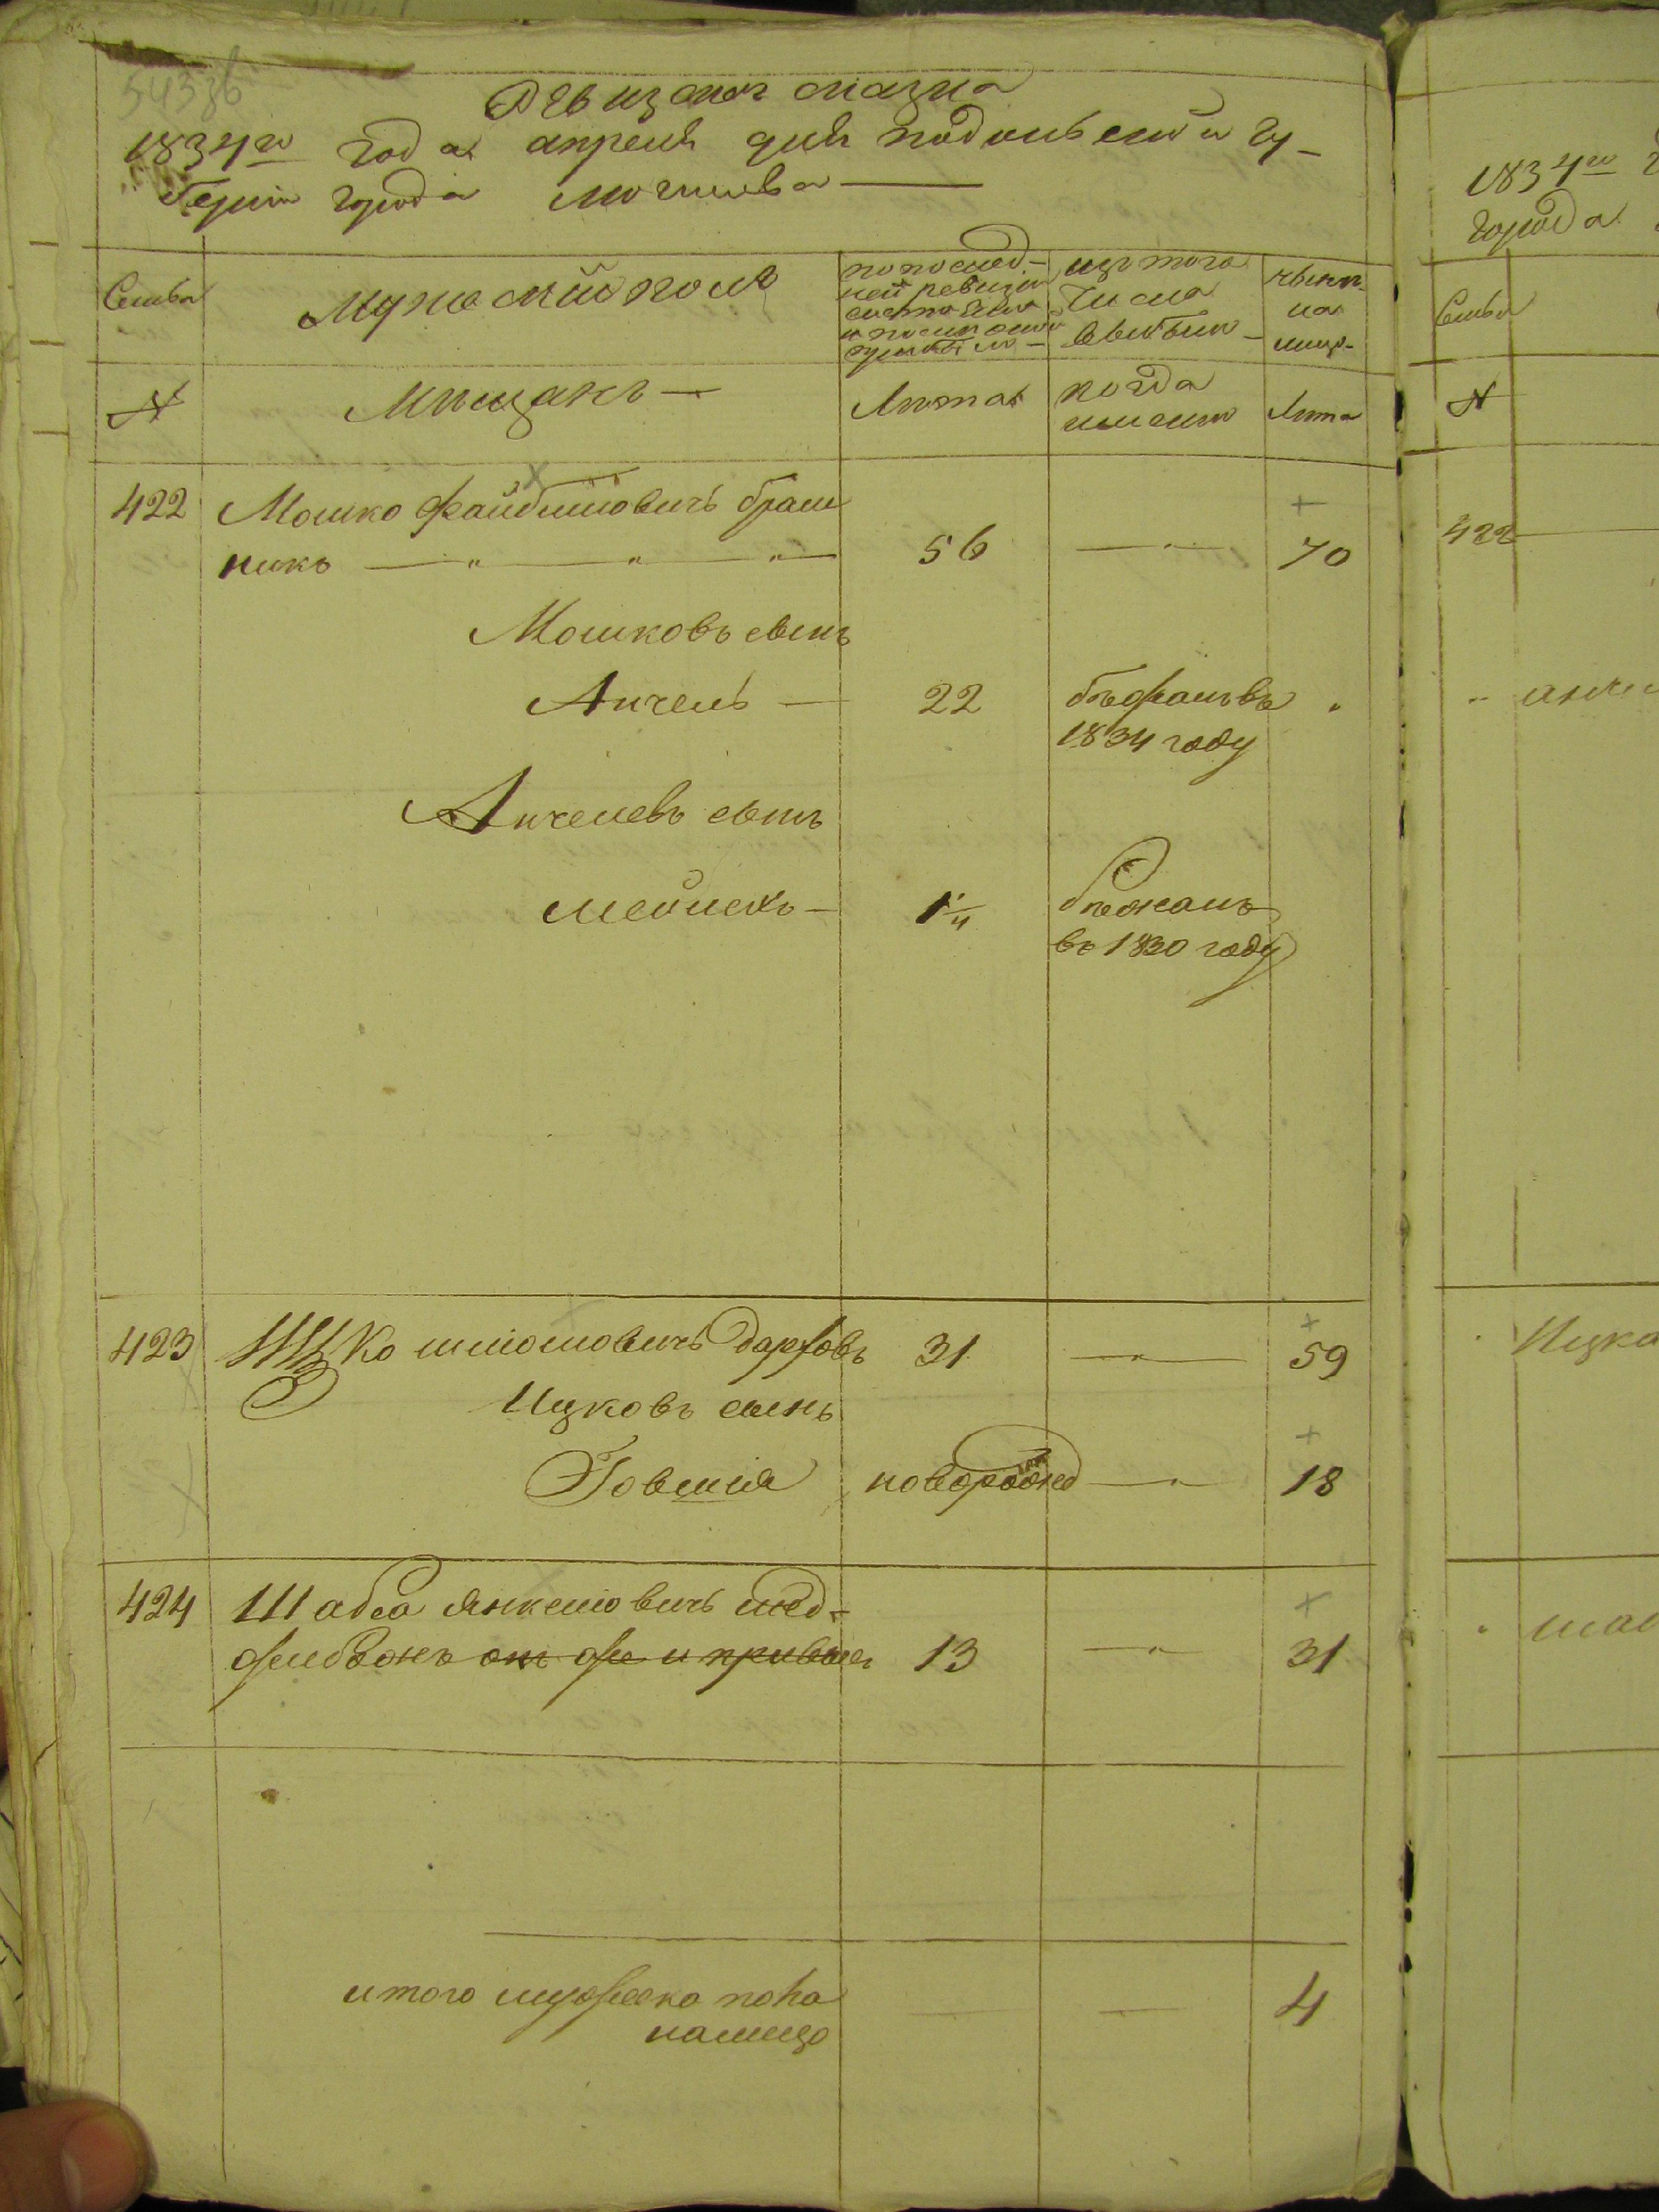 Ревизская сказка
1834го года апреля дня подольской гу-
берніи города могилева
Семьи
Мужескій полъ
по послед-
ней ревизіи
состояло
и после оной
прибыло
изъ того
числа
выбыло
ныне
на
лицо
№
Мещанъ
Лета
когда
именно
Лета
422
Мошко Файбишовичъ браш
никъ
56
70
Мошковъ сынъ
Анчель
22
бежалъ въ
1834 году
Анчелевъ сынъ
Мейлехъ
1/4
бежалъ
въ 1830 году
423
Ицко шліомовичъ
31
59
Ицковъ сынъ
Говшія
новорожд
18
424
Шабса Янкелювичъ
13
31
итого мужеска пола
налицо
4
1834го
города
Семьи
№
422
Ицка